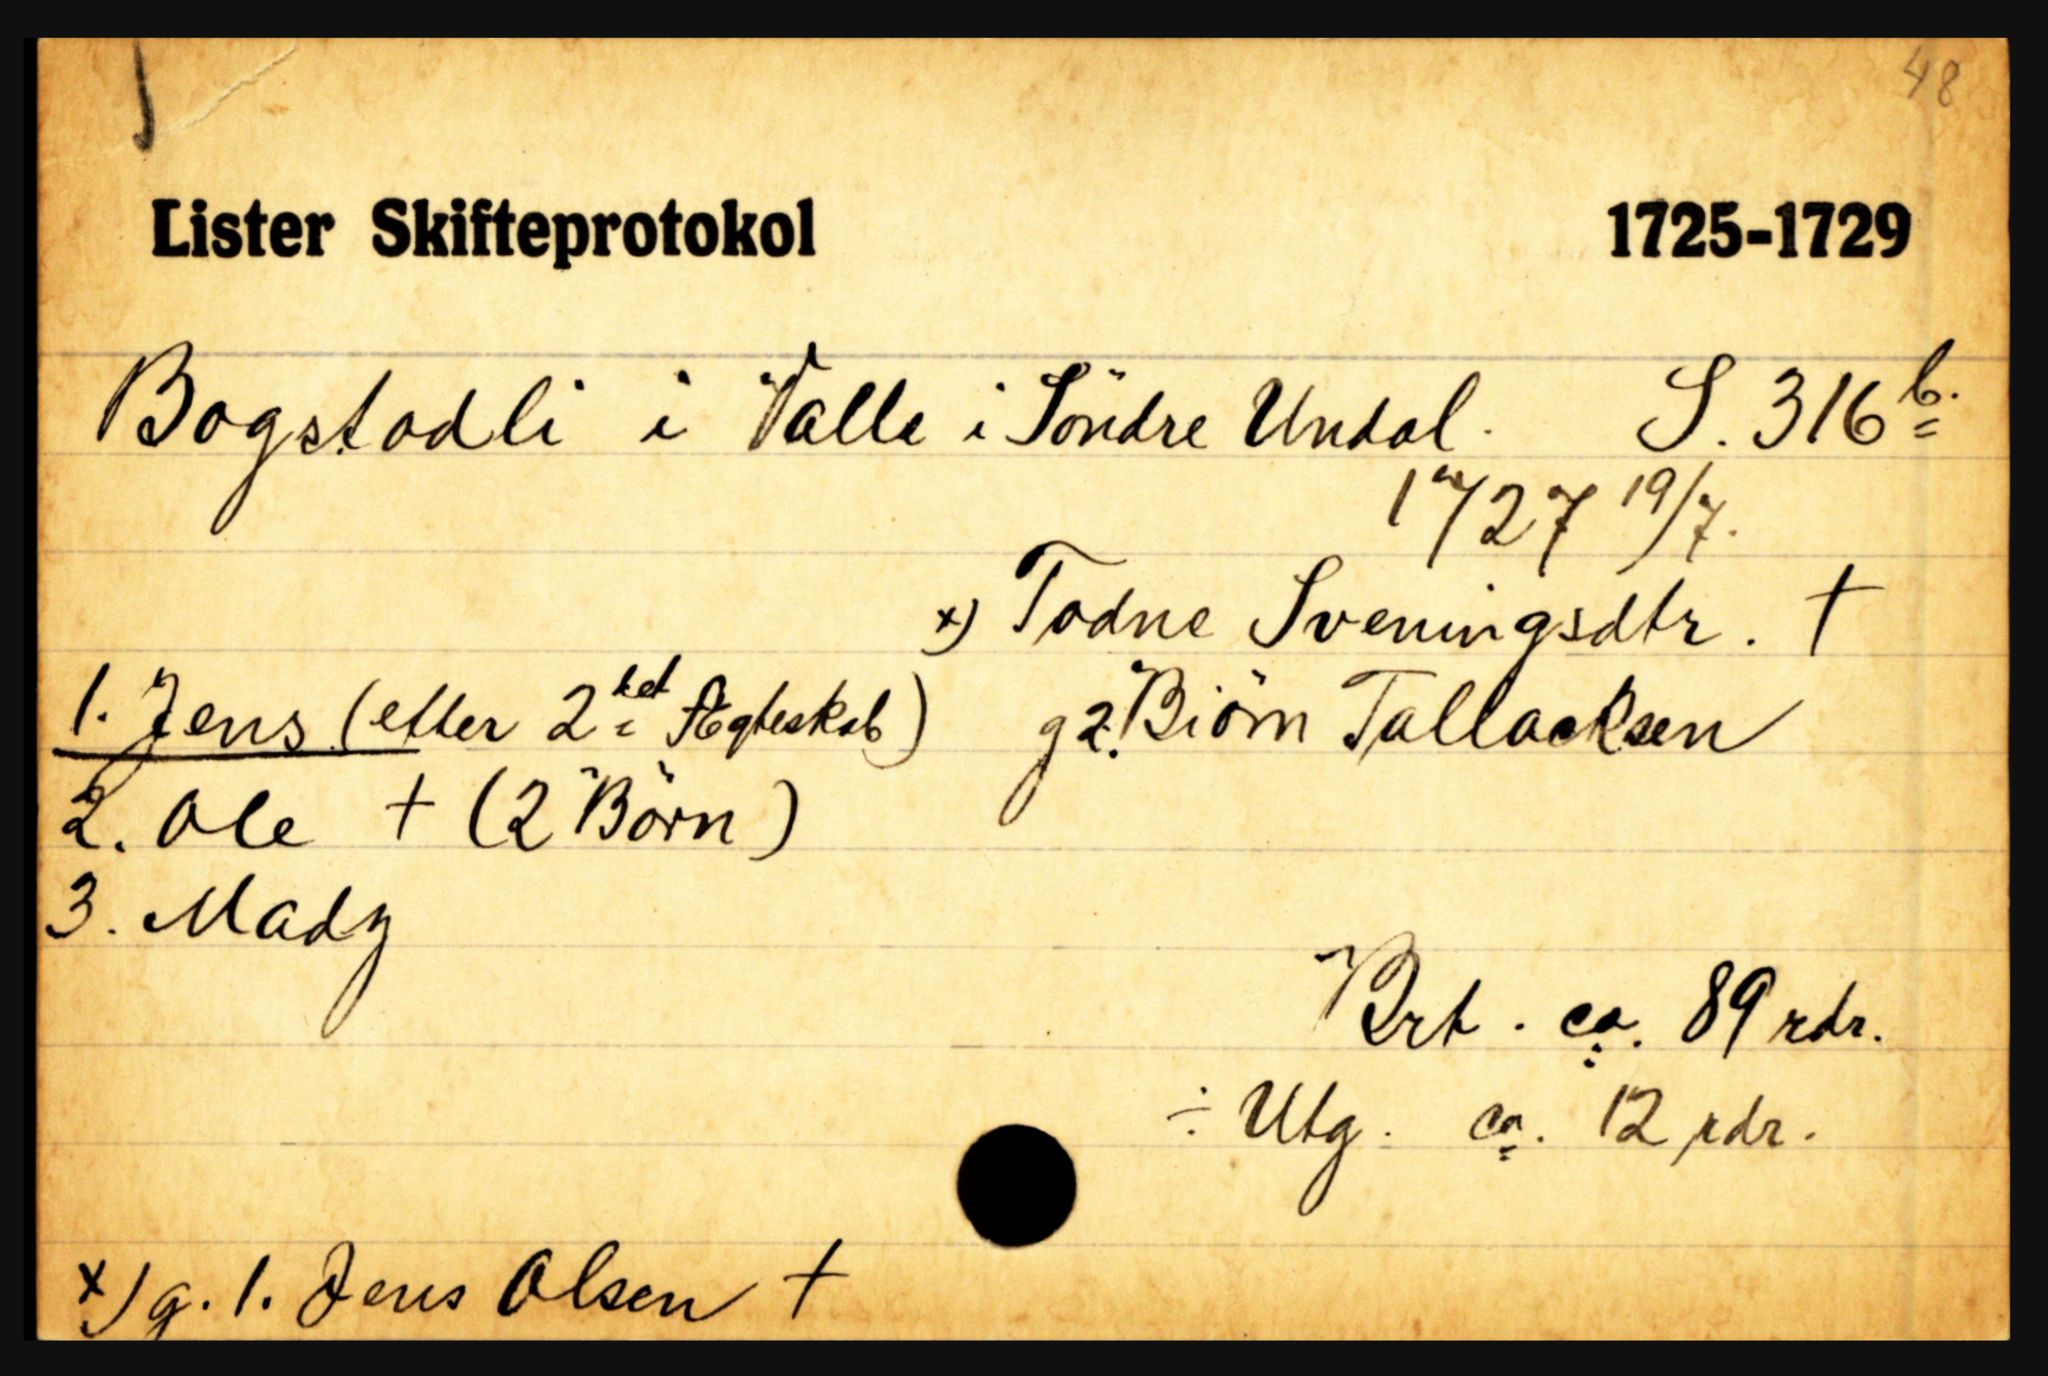 48
Lister Skifteprotokol 1725-1729
Bogstadli i Valle i Söndre Undal. S. 316 b.
1727 19/7.
x) Todne Sveningsdtr. †
1. Jens (efter 2det Ægteskab) g 2. Biörn Tallacksen
2. Ole † (2 Börn)
3. Mady
Brt. ca. 89 rdr.
÷ Utg. ca. 12 rdr.
x) g. 1. Jens Olsen †